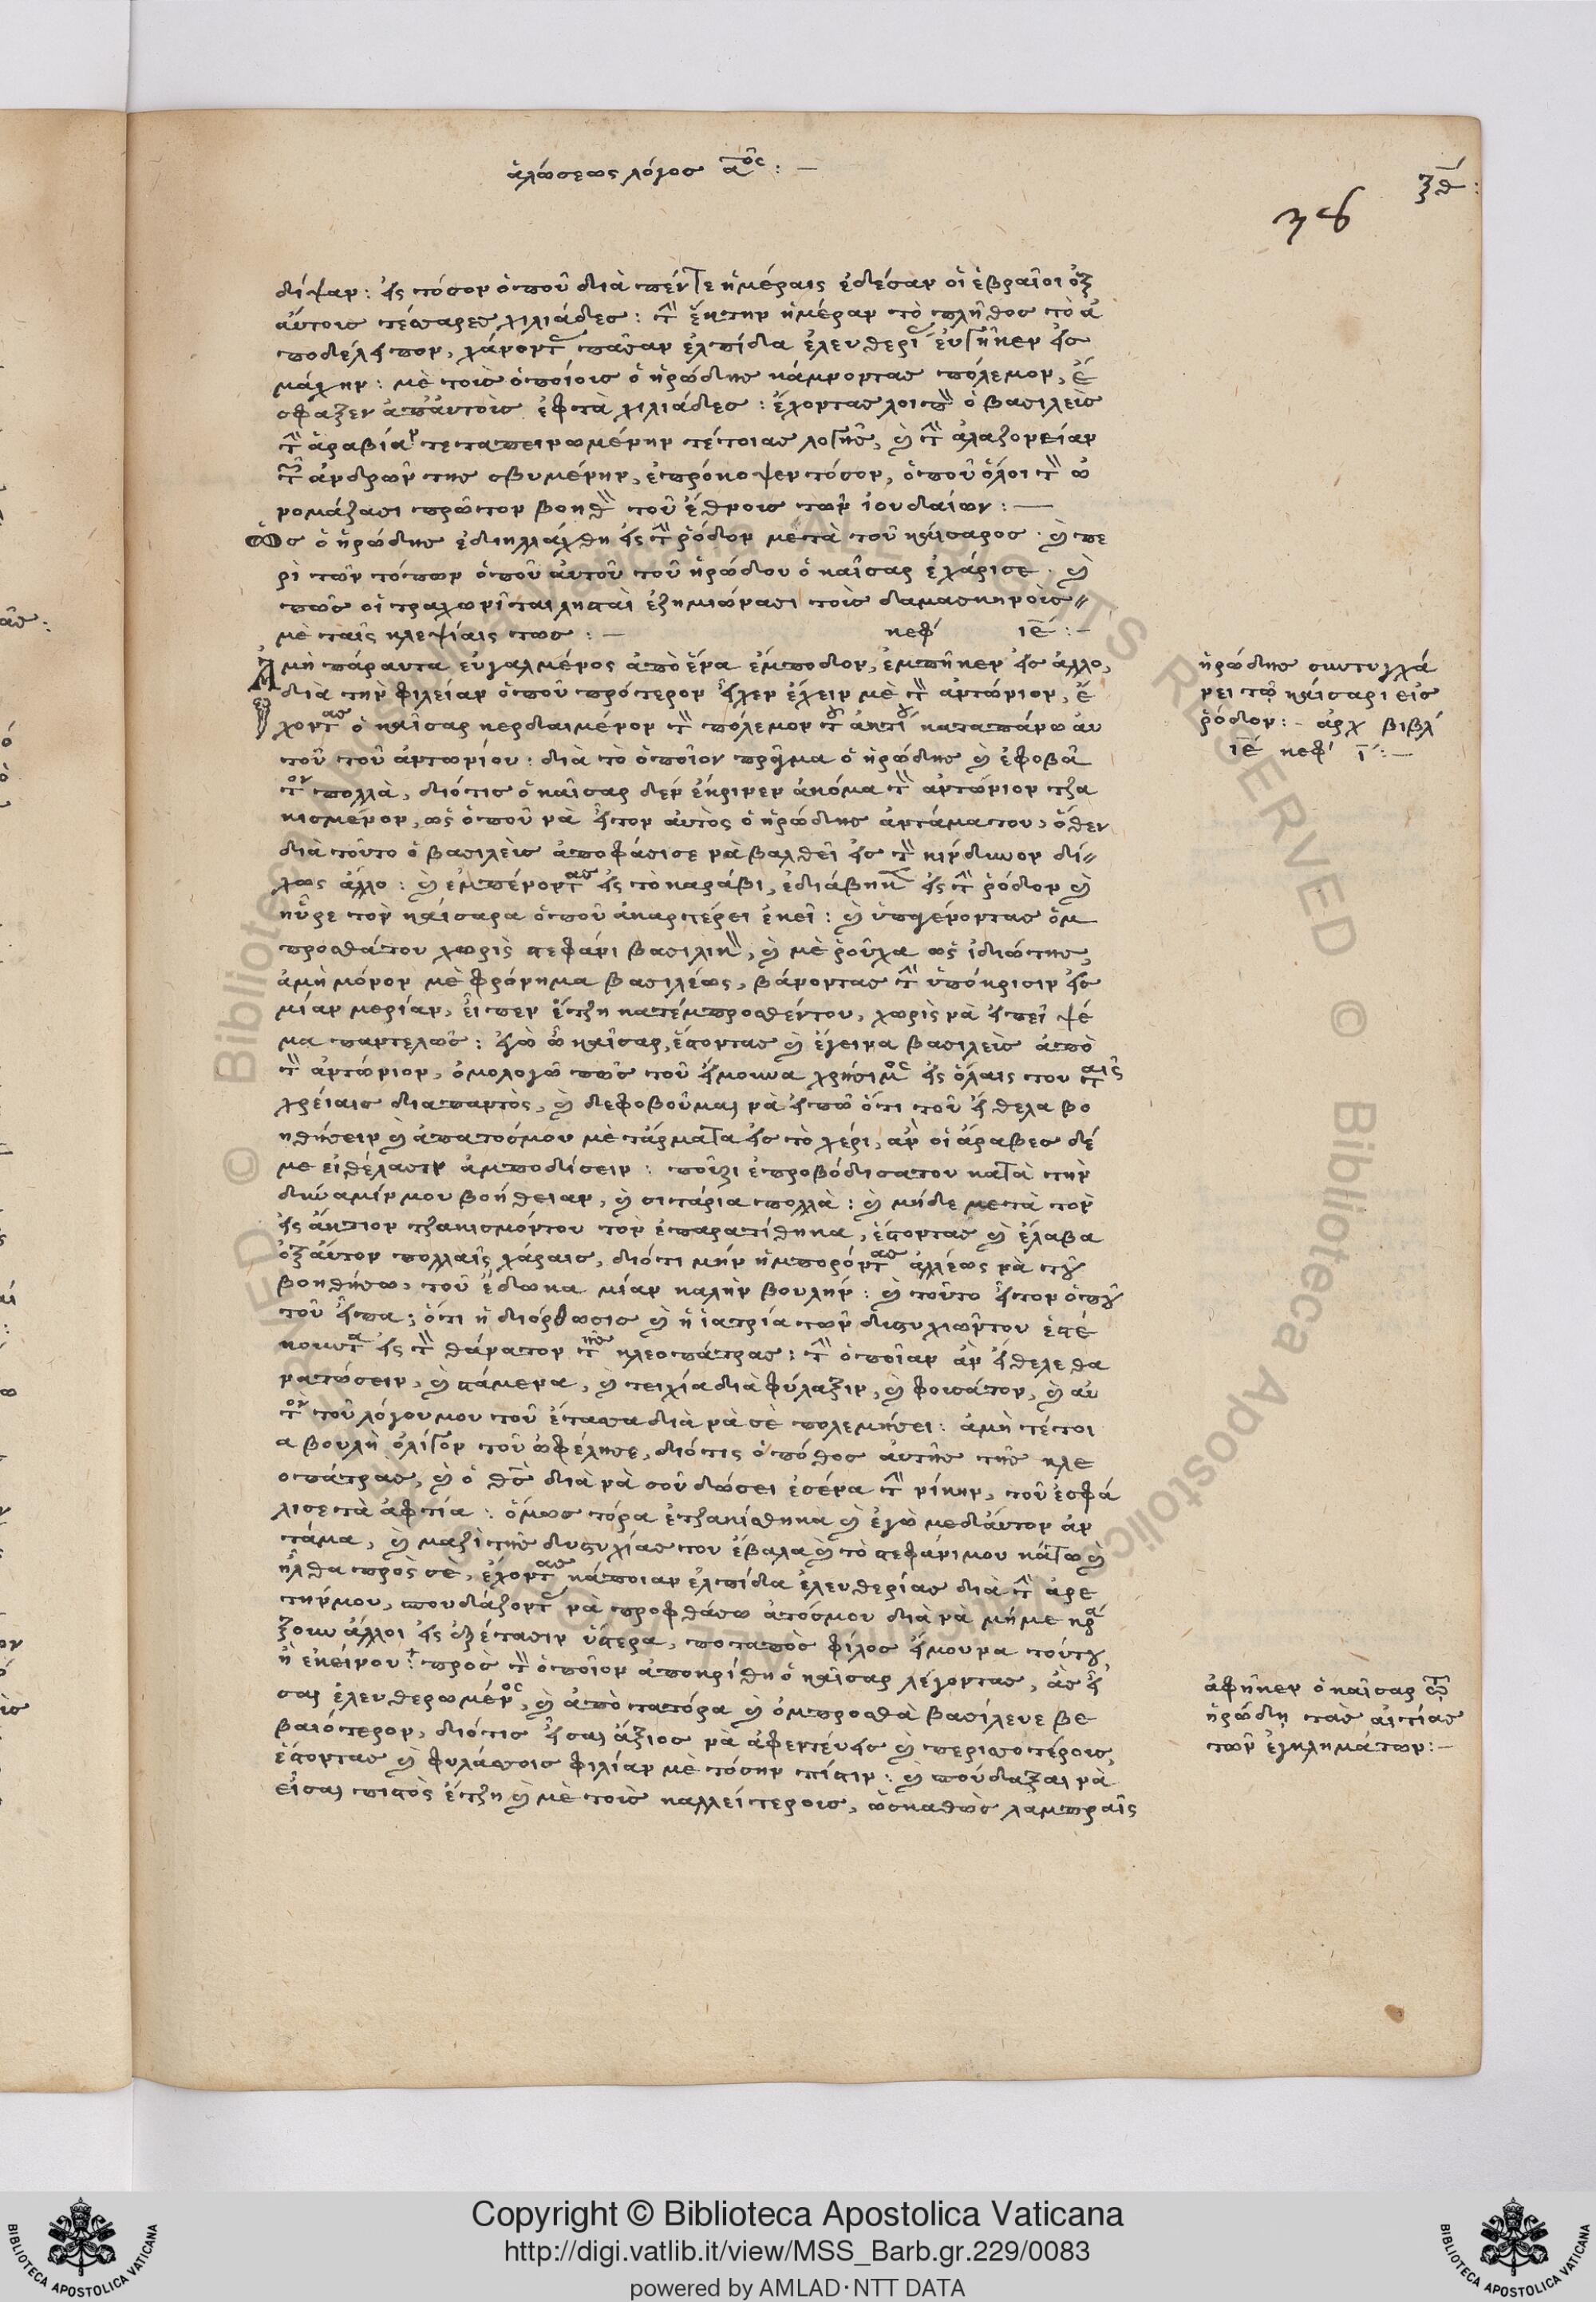 ἁλώσεως λόγος α^ος : —
ξδ :
38
δίψαν : εἰς τόσον ὁποῦ διὰ πέντε ἡμέραις ἐδέσαν οἱ ἑβραῖοι ὀξ
αὐτοις τέσσαρες χιλιάδες : τ̀ ἕκτην ἡμέραν τὸ πλῆθος τὸ ἀ
ποδέλειπον, χάνοντ πᾶσαν ἐλπίδα ἐλευθερί εὐγῆκεν εἰς
μάχην : μὲ τοὺς ὁποίους ὁ ἡρώδης κάμνοντας πόλεμον, ἔ
σφαξεν ἀπαὐτοὺς ἐφτὰ χιλιάδες : ἔχοντας λοιπ̀ ὁ βασιλεὺς
τ̀ ἀραβίαν τεταπεινωμένην τέτοιας λογῆς, καὶ τ̀ ἀλαζονείαν
τ̃ ἀνδρῶν της σβυμένην, ἐπρόκοψεν τόσον, ὁποῦ ὅλοι τ̀ ὠ
νομάζασι πρῶτον βοηθ̀ τοῦ ἔθνους τῶν ἰουδαίων : —
Πῶς ὁ ἡρώδης ἐδιηλλάχθη εἰς τ̀ ῥόδον μετὰ τοῦ καίσαρος · καὶ πε
ρὶ τῶν τόπων ὁποῦ αὐτοῦ τοῦ ἡρώδου ὁ καῖσαρ ἐχάρισε · καὶ
πῶς οἱ τραχωνῖται λησταὶ ἐζημιώνασι τοὺς δαμασκηνοὺς
μὲ ταῖς κλεψίαις τως : — κεφ ιε : —
Ἀμὴ πάραυτα εὐγαλμένος ἀπὸ ἕνα ἔμποδον, ἐμπῆκεν εἰς ἄλλο,
διὰ τὴν φιλείαν ὁποῦ πρότερον εἶχεν ἔχειν μὲ τ̀ ἀντώνιον, ἔ
χοντας ὁ καῖσαρ κερδαιμένον τ̀ πόλεμον τοῦ ἀκτίου καταπάνω αὐ
τοῦ τοῦ ἀντωνίου : διὰ τὸ ὁποῖον πρῆμα ὁ ἡρώδης καὶ ἐφοβᾶ
τον πολλὰ, διότις ὁ καῖσαρ δεν ἔκρινεν ἀκόμα τ̀ ἀντώνιον τζα
κισμένον, ὡς ὁποῦ νὰ εἶτον αὐτὸς ὁ ἡρώδης ἀντάματου, ὅθεν
διὰ τοῦτο ὁ βασιλεὺς ἀποφάσισε νὰ βαλθεῖ εἰς τ̀ κίνδυνον δί
χως ἄλλο : καὶ ἐμπένοντας εἰς τὸ καράβι, ἐδιάβηκ εἰς τ̀ ῥόδον καὶ
ηὗρε τὸν καίσαρα ὁποῦ ἀκαρτέρει ἐκεῖ : καὶ ὑπηγένοντας ὀμ
προσθάτου χωρὶς στεφάνι βασιλικ̀, καὶ μὲ ῥοῦχα ὡς ἰδιώτης,
ἀμὴ μόνον μὲ φρόνημα βασιλέως, βάνοντας τ̀ ὑπόκρισιν εἰς
μίαν μερίαν, εἶπεν ἔτζη κατέμπροσθέντου, χωρὶς νὰ εἰπεῖ ψέ
μα παντελῶς : ἐγὼ ὦ καῖσαρ, ἔστοντας καὶ ἔγεινα βασιλεὺς ἀπὸ
τ̀ ἀντώνιον, ὁμολογῶ πῶς τοῦ εἴμουνα χρήσιμος εἰς ὅλαις του ταῖς
χρείαις διαπαντὸς, καὶ δεφοβοῦμαι νὰ εἰπῶ ὅτι τοῦ εἴθελα βο
ηθήσειν καὶ ἀπατοσμου μὲ τάρματα εἰς τὸ χέρι, ἀν οἱ ἄραβες δέ
με εἰθέλασιν ἀμποδίσειν : ποῖζι ἐπροβόδισατου κατὰ τὴν
δύναμίν μου βοήθειαν, καὶ σιτάρια πολλὰ : καὶ μήδε μετὰ τὸν
εἰς ἄκτιον τζακισμόντου τὸν ἐπαρατίθηκα, ἔστοντας καὶ ἔλαβα
ὀξαὐτον πολλαῖς χάραις, διότι μήν ἡμπορόντας ἀλλέως νὰ του
βοηθήσω, τοῦ ἔδωκα μίαν καλὴν βουλήν : καὶ τοῦτο εἶτον ὁποῦ
τοῦ εἶπα : ὅτι ἡ διόρθωσις καὶ ἡ ἰατρία τῶν δυστυχιῶντου ἐστέ
κουντα εἰς τ̀ θάνατον τῆς κλεοπάτρας : τ̀ ὁποῖαν ἀν εἴθελε θα
νατώσειν, καὶ στάμενα, καὶ τειχία διὰ φύλαξιν, καὶ φουσάτον, καὶ αὐ
τὸν τοῦ λόγουμου τοῦ ἔτασσα διὰ νὰ σὲ πολεμήσει : ἀμὴ τέτοι
α βουλὴ ὀλίγον τοῦ ὠφέλησε, διότις ὁ πόθος αὐτῆς τῆς κλε
οπάτρας, καὶ ὁ θς διὰ νὰ σοῦ δώσει ἐσένα τ̀ νίκην, τοῦ ἐσφά
λισε τὰ ἀφτία : ὅμως τόρα ἐτζακίσθηκα καὶ ἐγὼ μεδαὔτον ἀν
τάμα, καὶ μαζὶ τῆς δυστυχίας του ἔβαλα καὶ τὸ στεφάνιμου κάτω καὶ
ἦλθα πρὸς σὲ, ἔχοντας κάποιαν ἐλπίδα ἐλευθερίας διὰ τ̀ ἀρε
τήνμου, σπουδάζοντ νὰ προφθάσω ἀτόσμου διὰ νὰ μήμε κρά
ξουν ἄλλοι εἰς ὀξέτασιν ὕστερα, ποταπὸς φίλος εἴμουνα τούτου,
ἢ ἐκείνου : πρὸς τ̀ ὁποῖον ἀποκρίθη ὁ καῖσαρ λέγοντας, ἀς εἶ
σαι ἐλευθερωμένος, καὶ ἀπὸ τατόρα καὶ ὀμπροσθὰ βασίλευε βε
βαιότερον, διότις εἶσαι ἄξιος νὰ ἀφεντεύεις καὶ περισσοτέρους,
ἔστοντας καὶ φυλάσσεις φιλίαν μὲ τόσην πίστιν : καὶ σπούδαξαι νὰ
εἶσαι πιστὸς ἔτζη καὶ μὲ τοὺς καλλείτερους, ὡσκαθὼς λαμπραῖς
ἡρώδης συντυγχά
νει τῷ καίσαρι εἰς
ῥόδον : — ἀρχ βιβλ
ιε κεφ ι : —
ἀφῆκεν ὁ καῖσαρ τῷ
ἡρώδῃ τὰς αἰτίας
τῶν ἐγκλημάτων : —
Copyright © Biblioteca Apostolica Vaticana
http://digi.vatlib.it/view/MSS_Barb.gr.229/0083
powered by AMLAD·NTT DATA
BIBLIOTECA APOSTOLICA VATICANA
BIBLIOTECA APOSTOLICA VATICANA